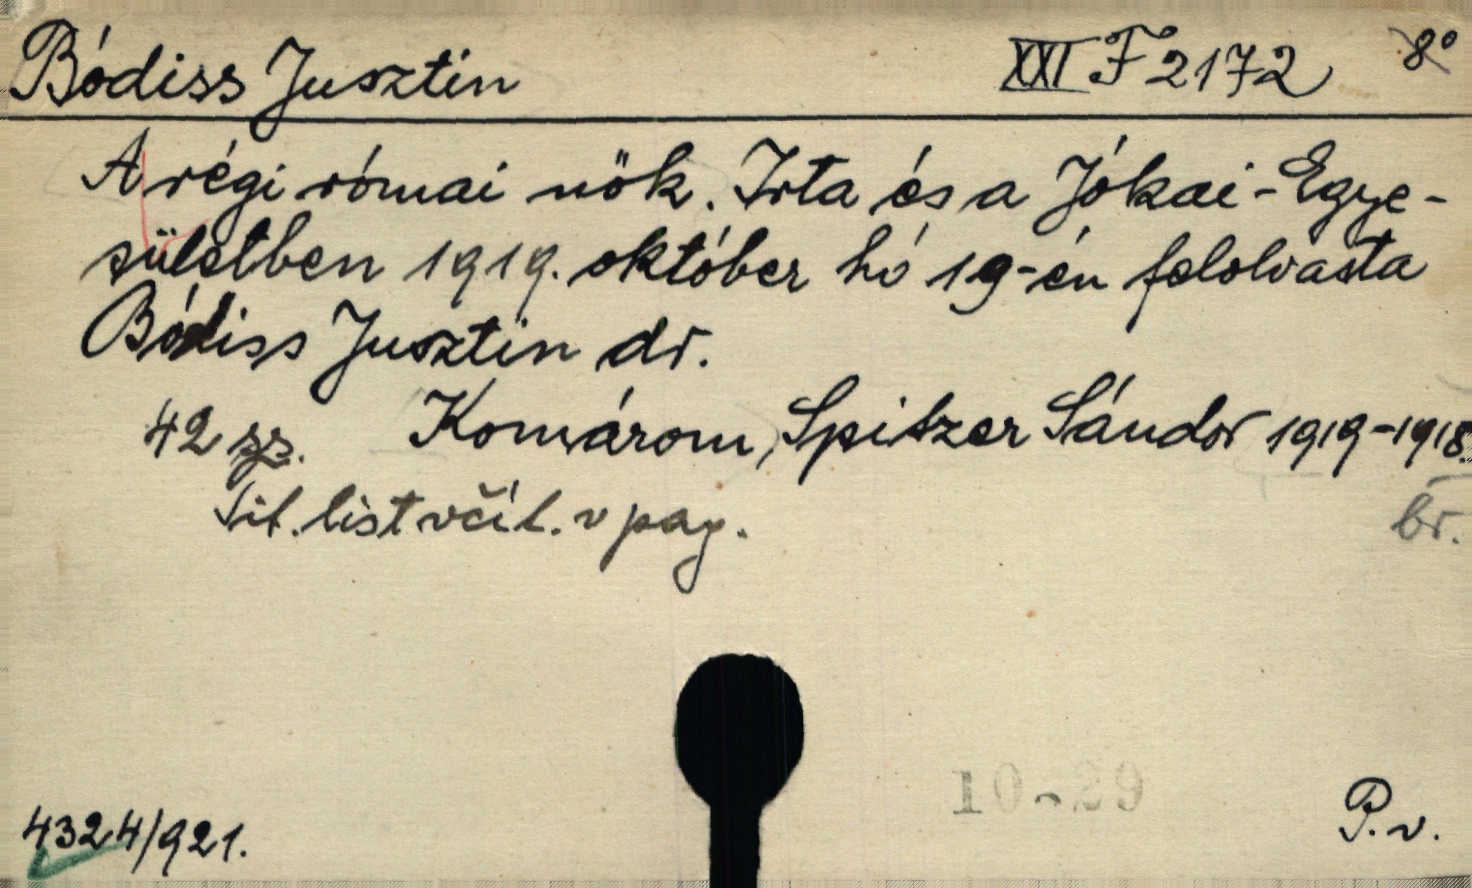 Bódiss Jusztin XXI F 2172 8°
A régi római nök. Irta és a Jókai-Egye-
sületben 1919. október hó 19-én felolvasta
Bódiss Jusztin dr.
42 Komárom, Spitzer Sándor 1919-1918.
Tit. list včít. v pag. br.
10-29
4324/921. P. v.